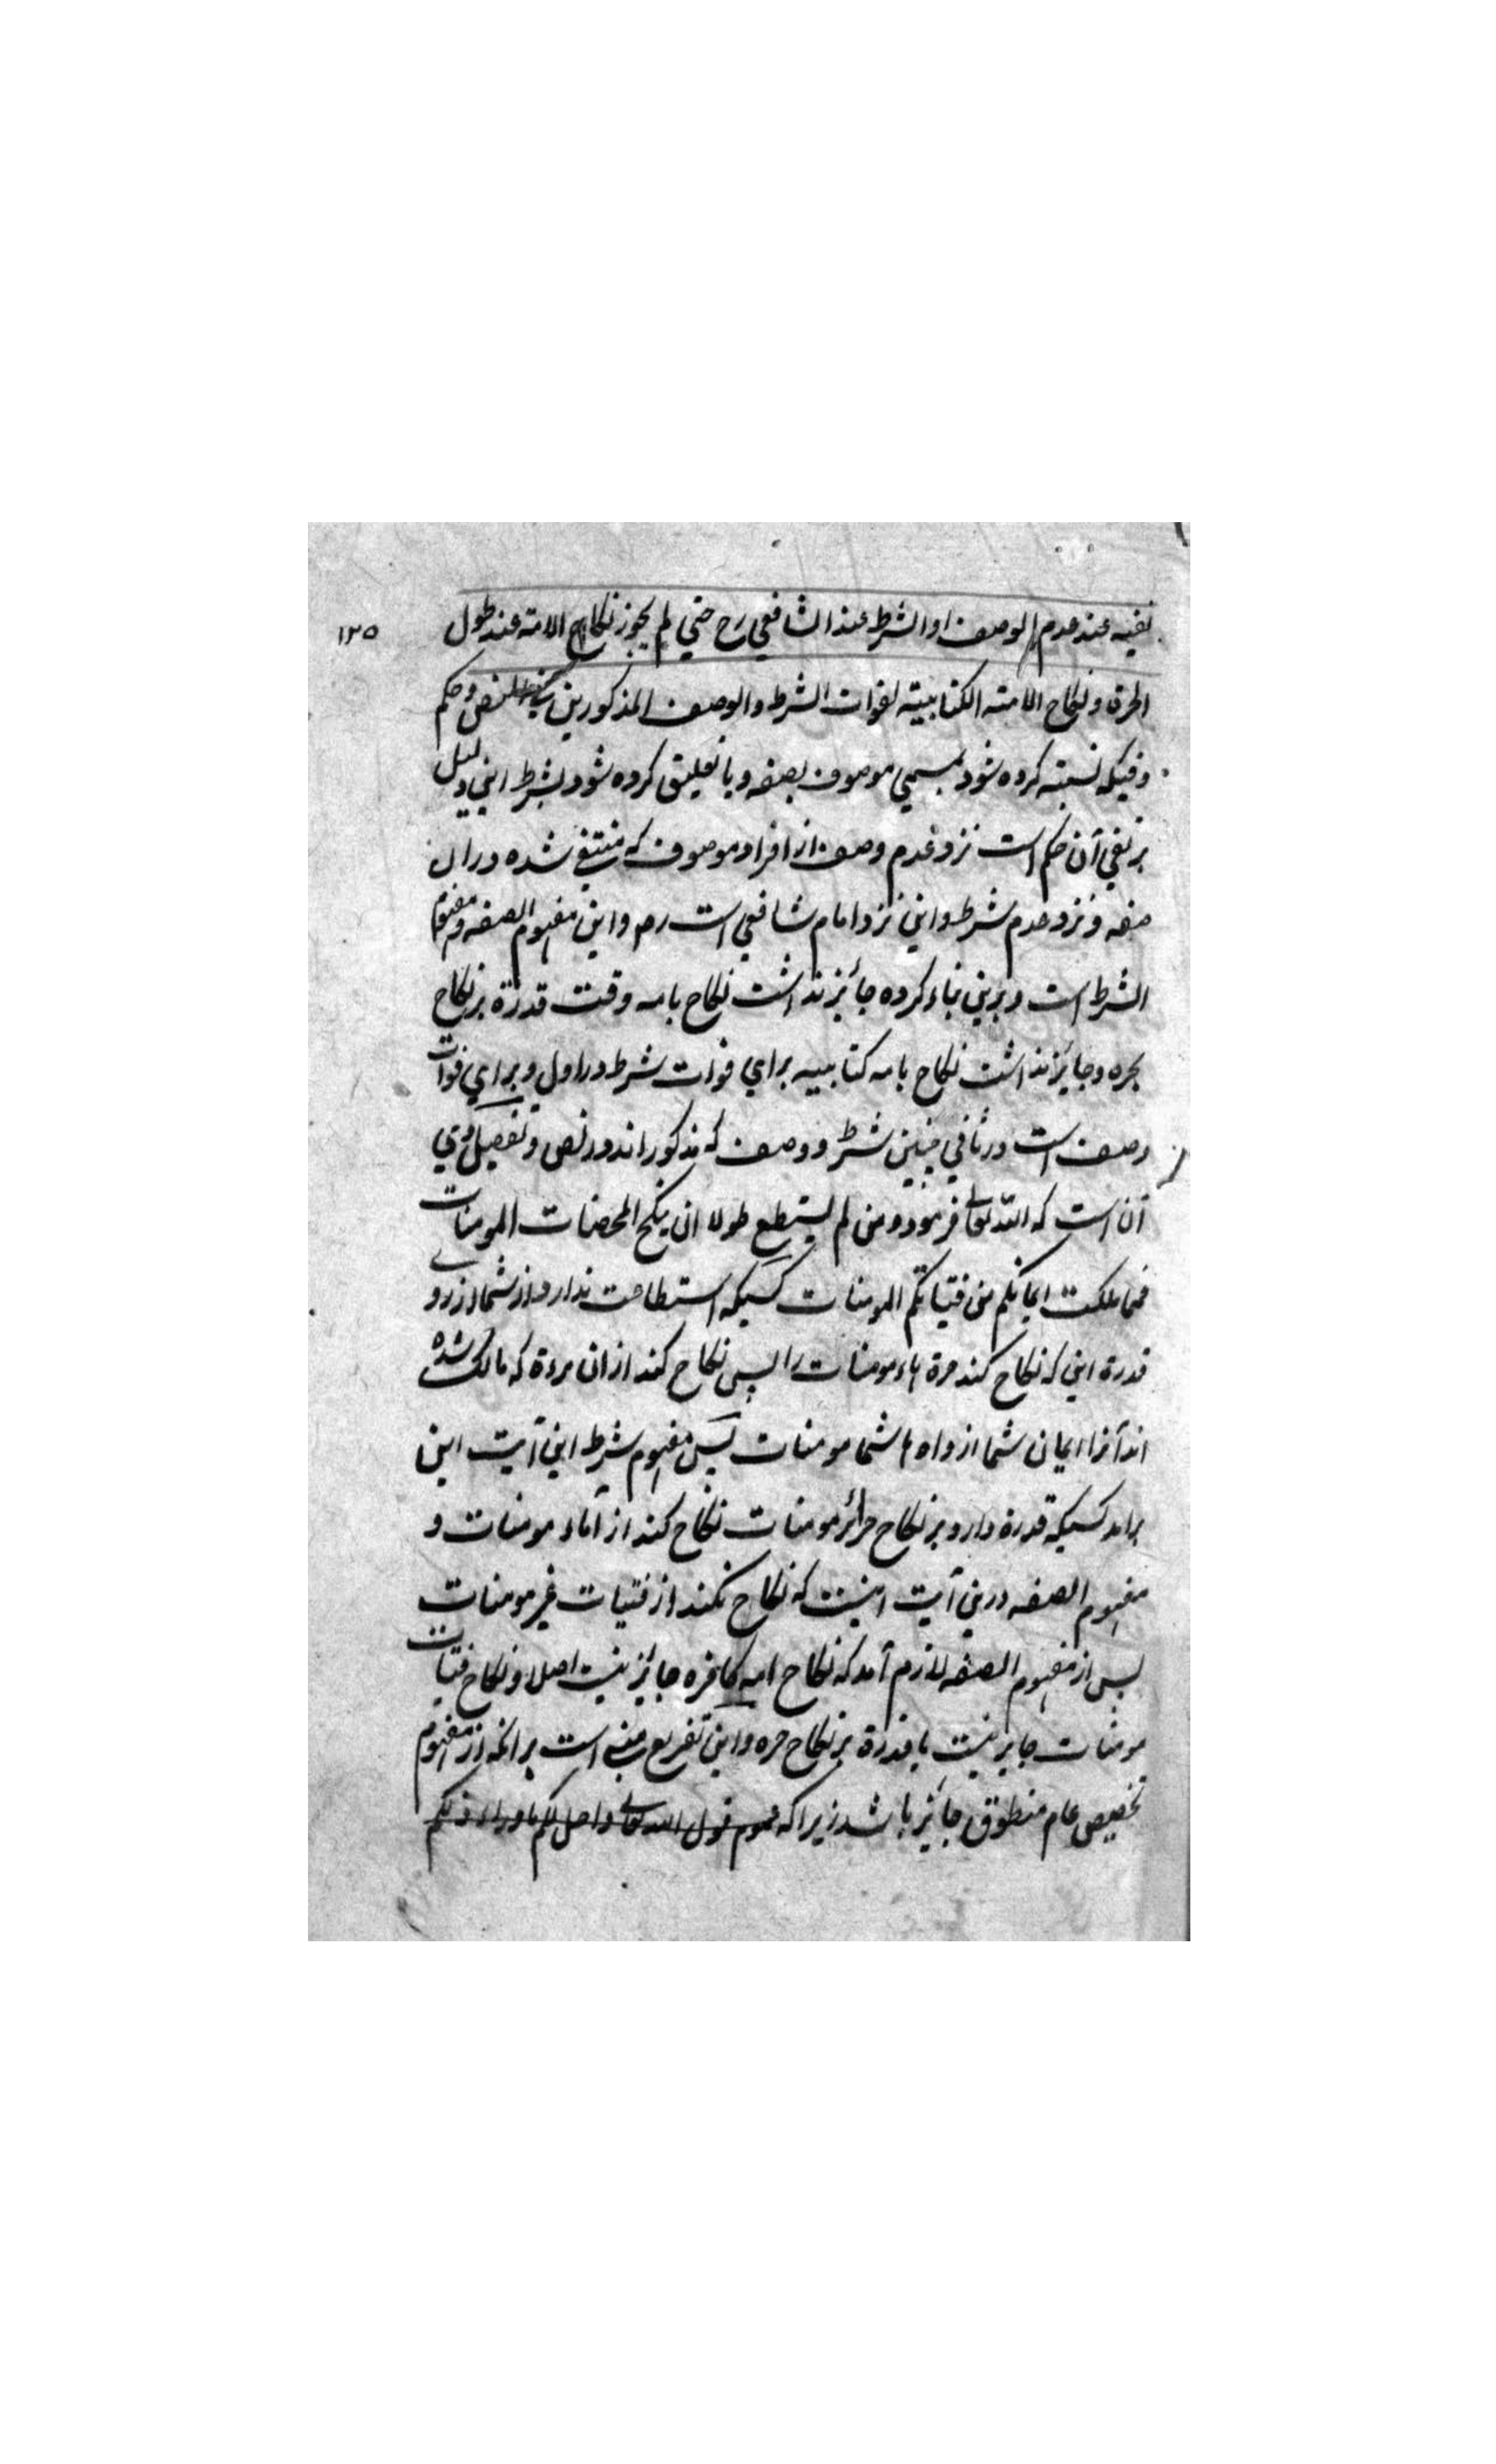 نفيه عند عدم الوصف او الشرط عند الشافعي رح حتي لم يجوز نكاح الامة عند طول
۱۲۵
الحرة و نكاح الامته الكتابيته لفوات الشرط والوصف المذكورين في النص و حكم
وقتيكه نسبته كرده شود بمسمي موصوف بصفه و يا تعليق كرده شود بشرط اين دليل
بر نفي آن حكم است نزد عدم وصف از افراد موصوف كه منتفي شده دران
صفه و نزد عدم شرط و اين نزد امام شافعي است رح و اين مفهوم الصفه و مفهوم
الشرط است و برين بناء كرده جائز نداشت نكاح بامه وقت قدرة بر نكاح
بحره و جايز نداشت نكاح بامه كتابيه براي فوات شرط در اول و براي فوات
وصف است در ثاني چنين شرط و وصف كه مذكور اند در نص و تفصيل وي
آن است كه الله تعالي فرموده و من لم يستطع طولا ان ينكح المحصنات المومنات
فمما ملكت ايمانكم من فتياتكم المومنات كسيكه استطاعت ندارد از شما از روے
قدرة اين كه نكاح كند حرة ہاء مومنات را پس نكاح كند از ان مرءة كه مالك شده
اند آنرا ايمان شما از داه ہا شما مومنات پس مفهوم شرط اين آيت اين
برامد كسيكه قدرة دارد بر نكاح حرائر مومنات نكاح كند از آماء مومنات و
مفهوم الصفه درين آيت اينست كه نكاح نكند از فتيات غير مومنات
پس از مفهوم الصفه لازم آمد كه نكاح امه كافره جائز نيست اصلا و نكاح فتيات
مومنات جايز نيست با قدرة بر نكاح حره و اين تفريع مبني است برانكه از مفهوم
تخصيص عام منطوق جائز باشد زيرا كه عموم قول الله تعالي و احل لكم ما وراء ذلكم